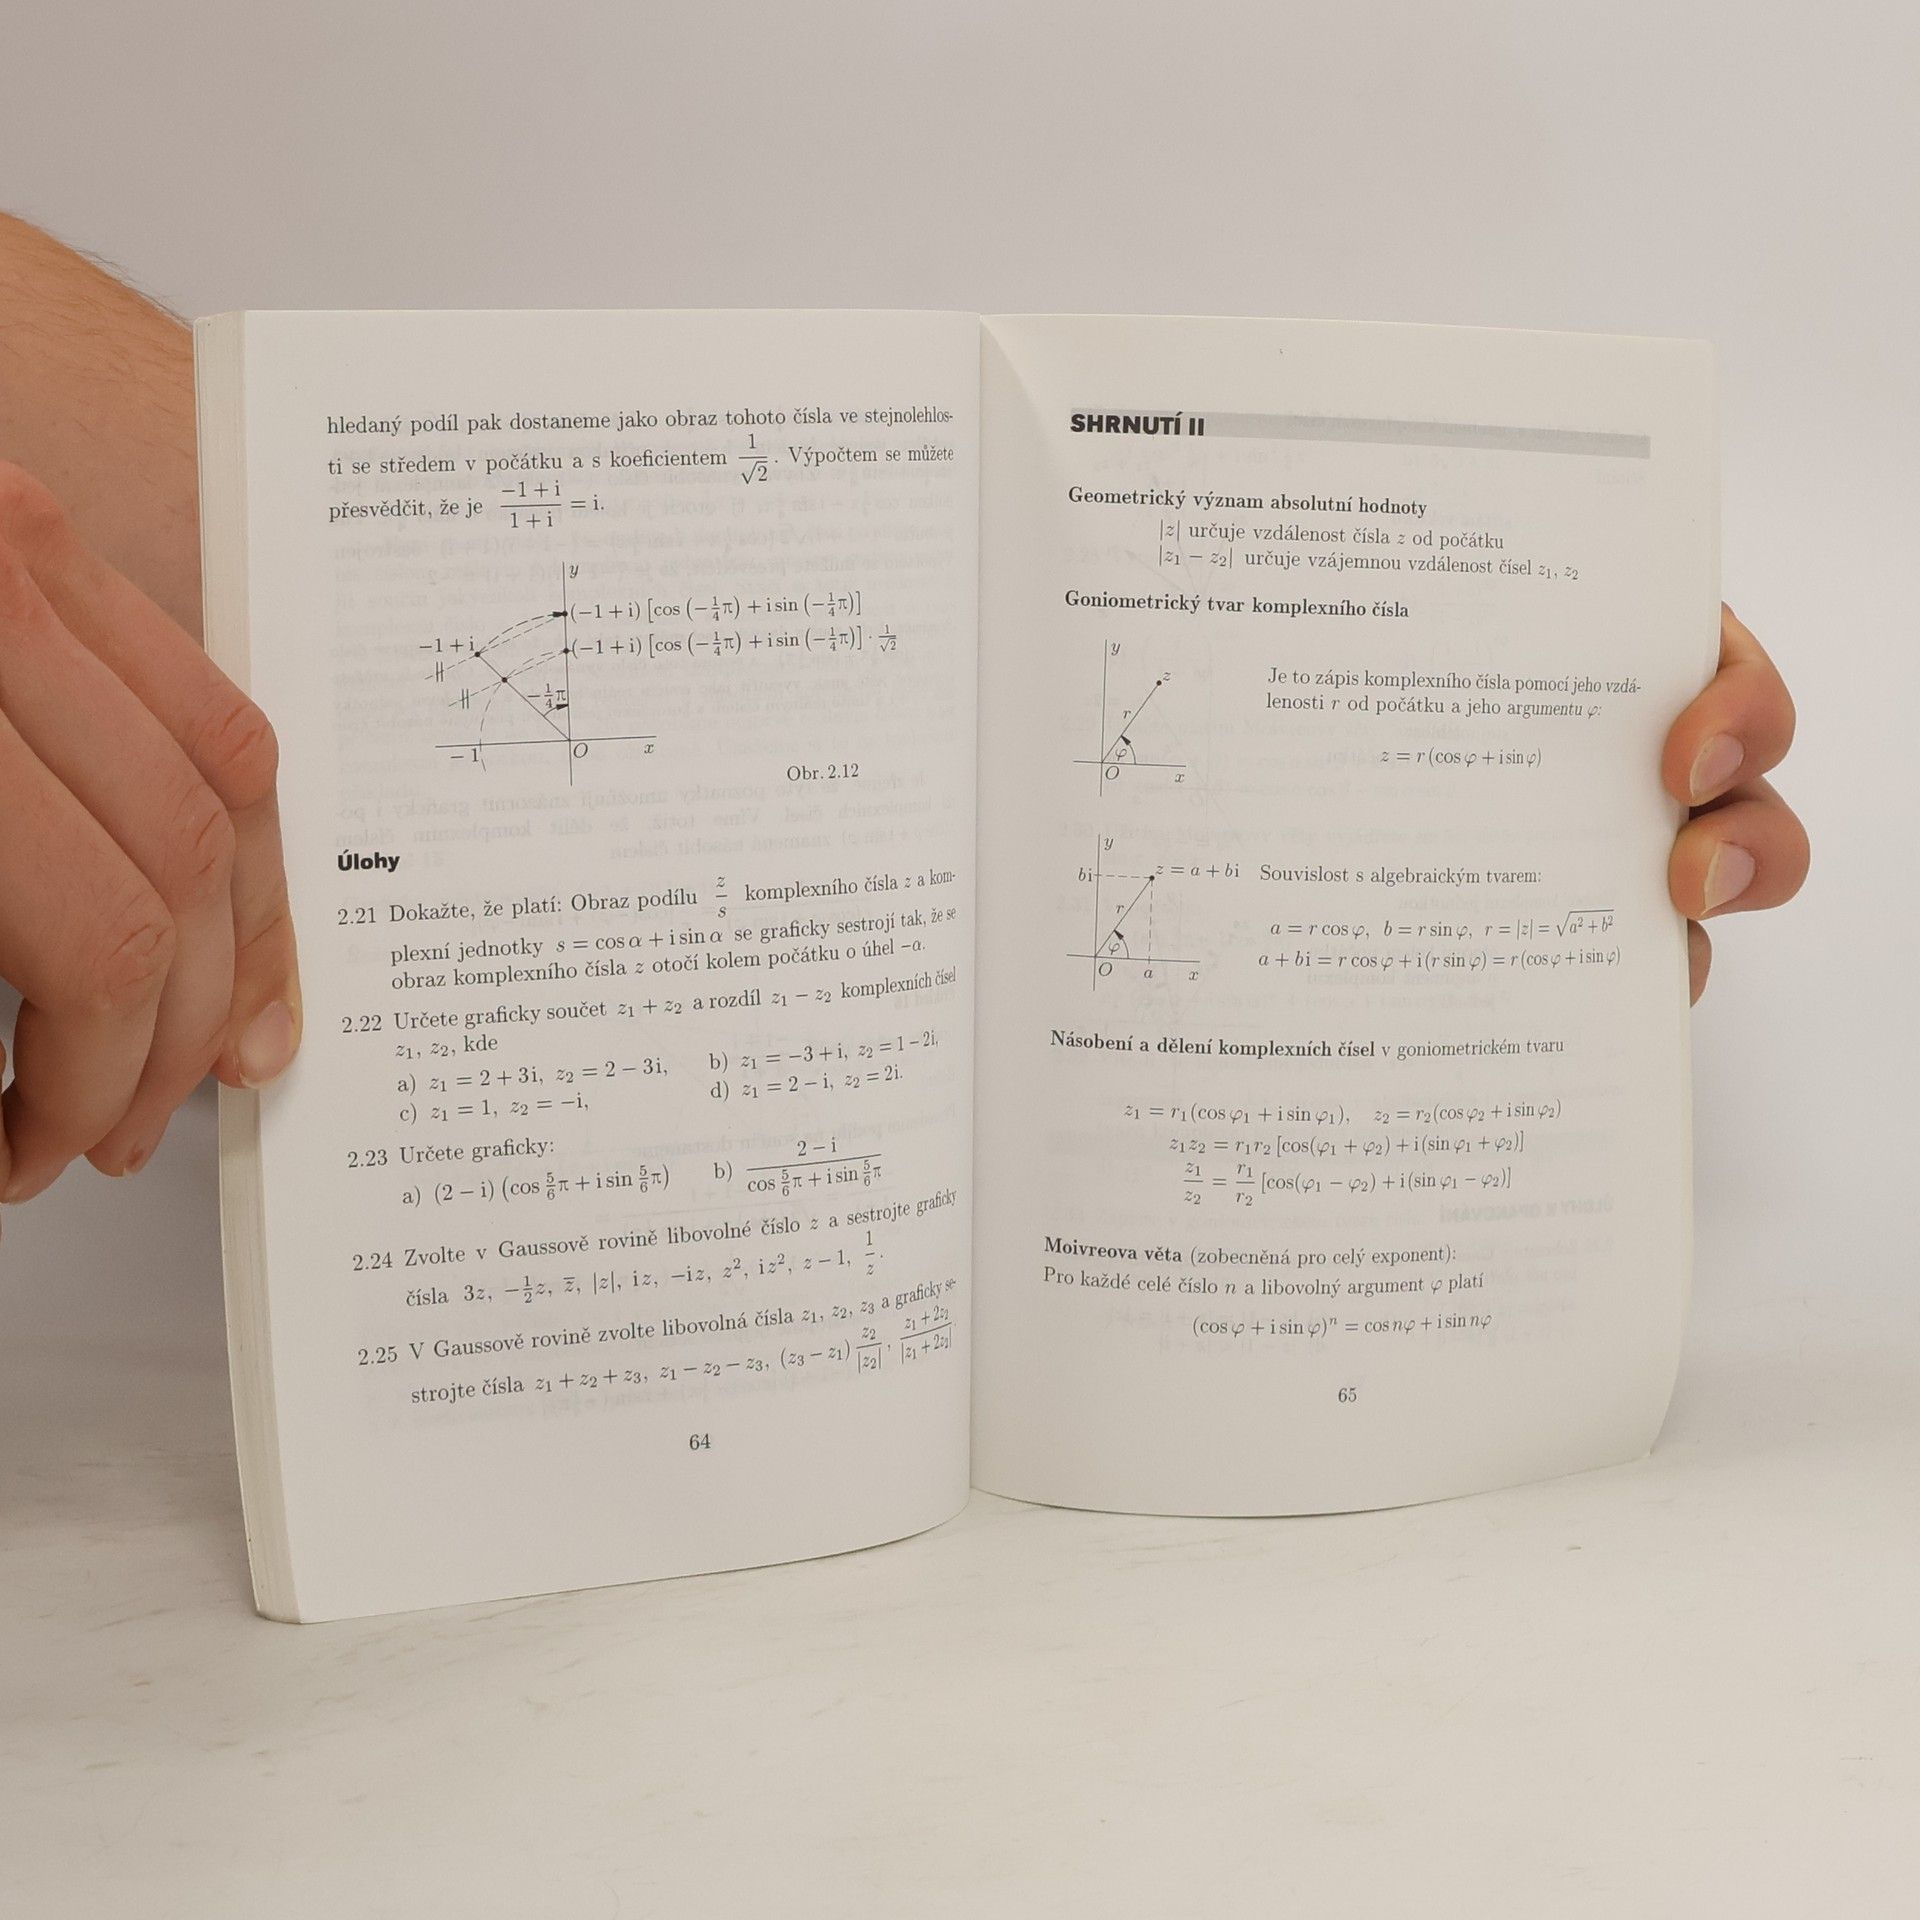 hledaný podíl pak dostaneme jako obraz tohoto čísla ve stejnolehlos-
ti se středem v počátku a s koeficientem 1/√2. Výpočtem se můžete
přesvědčit, že je (−1 + i)/(1 + i) = i.
y
(−1 + i) [cos (−1/4 π) + i sin (−1/4 π)]
−1 + i
(−1 + i) [cos (−1/4 π) + i sin (−1/4 π)] · 1/√2
−1/4 π
−1
O
x
Obr. 2.12
Úlohy
2.21 Dokažte, že platí: Obraz podílu z/s komplexního čísla z a kom-
plexní jednotky s = cos α + i sin α se graficky sestrojí tak, že se
obraz komplexního čísla z otočí kolem počátku o úhel −α.
2.22 Určete graficky součet z₁ + z₂ a rozdíl z₁ − z₂ komplexních čísel
z₁, z₂, kde
a) z₁ = 2 + 3i, z₂ = 2 − 3i, b) z₁ = −3 + i, z₂ = 1 − 2i,
c) z₁ = 1, z₂ = −i, d) z₁ = 2 − i, z₂ = 2i.
2.23 Určete graficky:
a) (2 − i) (cos 5/6 π + i sin 5/6 π) b) (2 − i)/(cos 5/6 π + i sin 5/6 π)
2.24 Zvolte v Gaussově rovině libovolné číslo z a sestrojte graficky
čísla 3z, −1/2 z, z̅, |z|, iz, −iz, z², iz², z − 1, 1/z.
2.25 V Gaussově rovině zvolte libovolná čísla z₁, z₂, z₃ a graficky se-
strojte čísla z₁ + z₂ + z₃, z₁ − z₂ − z₃, (z₃ − z₁) z₂/|z₂|, (z₁ + 2z₂)/|z₁ + 2z₂|.
64
SHRNUTÍ II
Geometrický význam absolutní hodnoty
|z| určuje vzdálenost čísla z od počátku
|z₁ − z₂| určuje vzájemnou vzdálenost čísel z₁, z₂
Goniometrický tvar komplexního čísla
y
z
r
φ
O
x
Je to zápis komplexního čísla pomocí jeho vzdá-
lenosti r od počátku a jeho argumentu φ:
z = r (cos φ + i sin φ)
y
bi
z = a + bi
r
φ
O
a
x
Souvislost s algebraickým tvarem:
a = r cos φ, b = r sin φ, r = |z| = √(a² + b²)
a + bi = r cos φ + i (r sin φ) = r (cos φ + i sin φ)
Násobení a dělení komplexních čísel v goniometrickém tvaru
z₁ = r₁ (cos φ₁ + i sin φ₁), z₂ = r₂ (cos φ₂ + i sin φ₂)
z₁z₂ = r₁r₂ [cos(φ₁ + φ₂) + i (sin φ₁ + φ₂)]
z₁/z₂ = r₁/r₂ [cos(φ₁ − φ₂) + i (sin φ₁ − φ₂)]
Moivreova věta (zobecněná pro celý exponent):
Pro každé celé číslo n a libovolný argument φ platí
(cos φ + i sin φ)ⁿ = cos nφ + i sin nφ
65